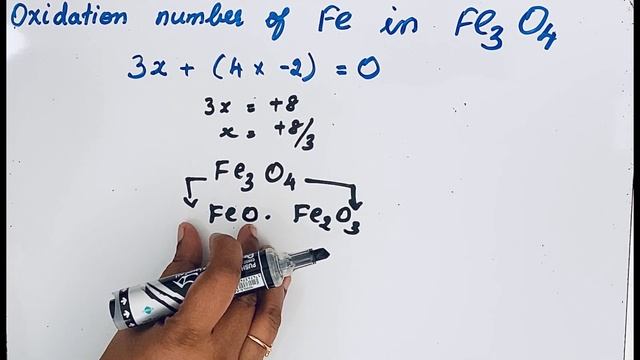 Oxidation number of Fe in Fe₃O₄
3x + (4x -2) = 0
3x = +8
x = +8/3
Fe₃O₄
FeO. Fe₂O₃
PUSH